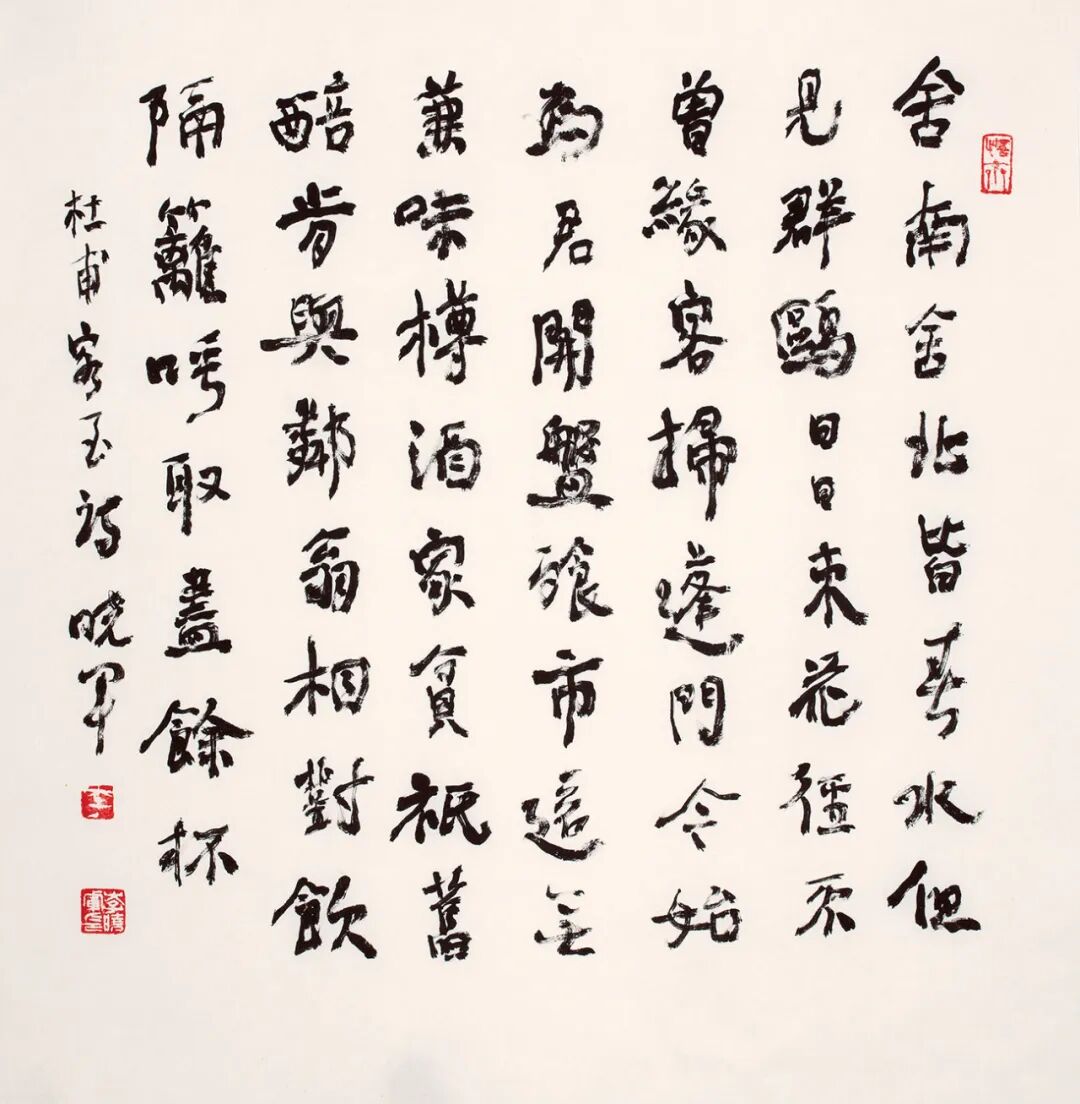 舍南舍北皆春水但
見群鷗日日来花徑不
曾緣客掃蓬門今始
為君開盤飧市遠無
兼味樽酒家貧祇舊
醅肯與鄰翁相對飲
隔籬呼取盡餘杯
杜甫客至詩 晓军
李曉軍印